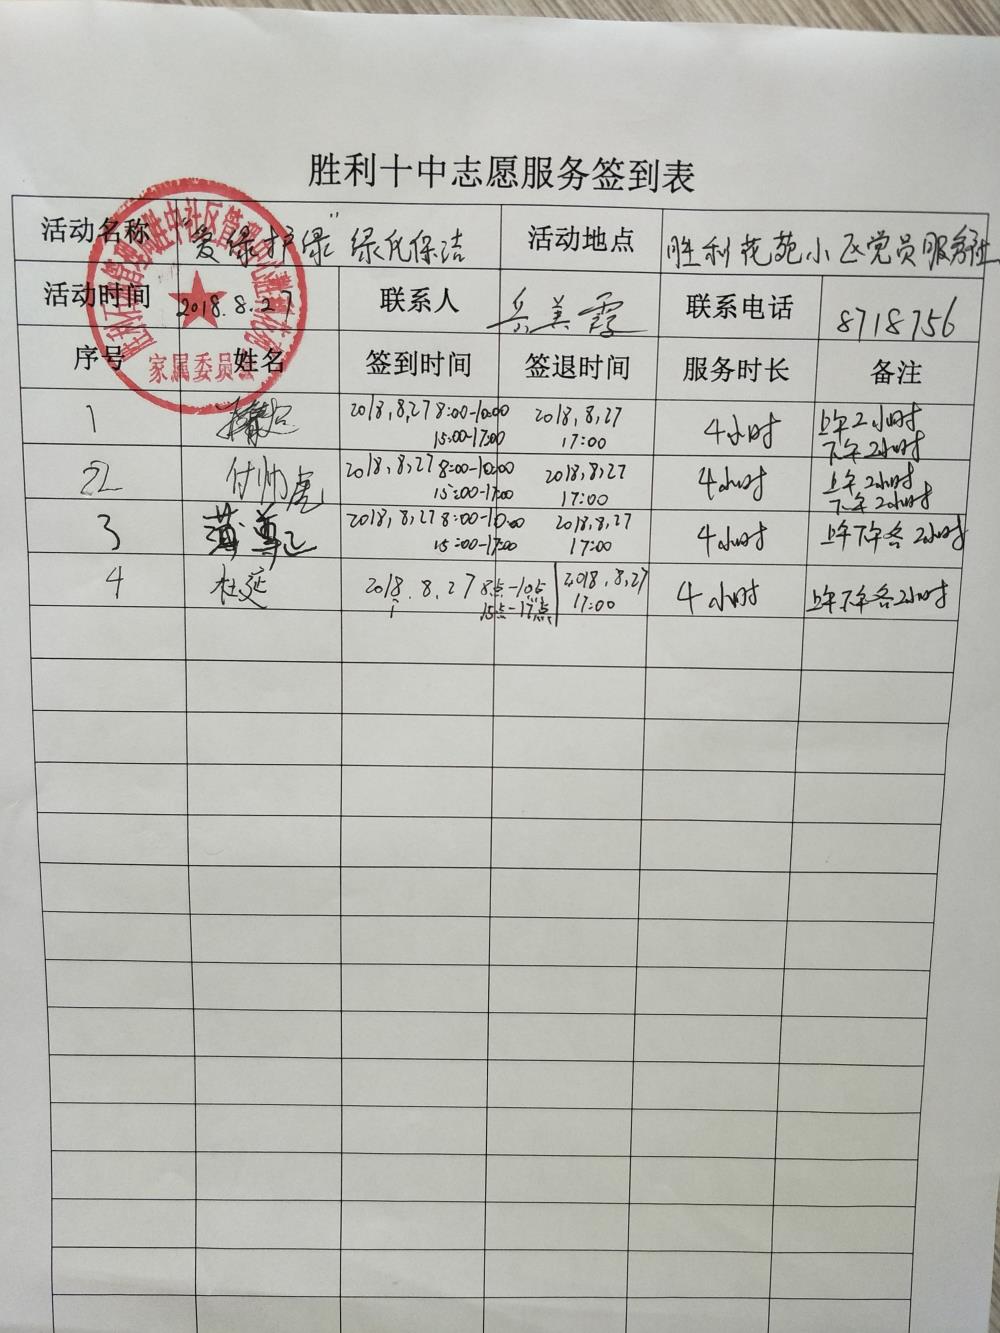 胜利十中志愿服务签到表
活动名称 "爱绿护绿"绿化保洁 活动地点 胜利花苑小区党员服务社
活动时间 2018.8.27 联系人 岳美霞 联系电话 8718756
家属委员会
序号 姓名 签到时间 签退时间 服务时长 备注
1 2018,8,27 8:00-10:00 2018,8,27 4小时 上午2小时
15:00-17:00 17:00 下午2小时
2 付帅虎 2018,8,27 8:00-10:00 2018,8,27 4小时 上午2小时
15:00-17:00 17:00 下午2小时
3 2018,8,27 8:00-10:00 2018,8,27 4小时 上午下午各2小时
15:00-17:00 17:00
4 杜延 2018.8.27 8点-10点 2018,8,27 4小时 上午下午各2小时
15点-17点 17:00